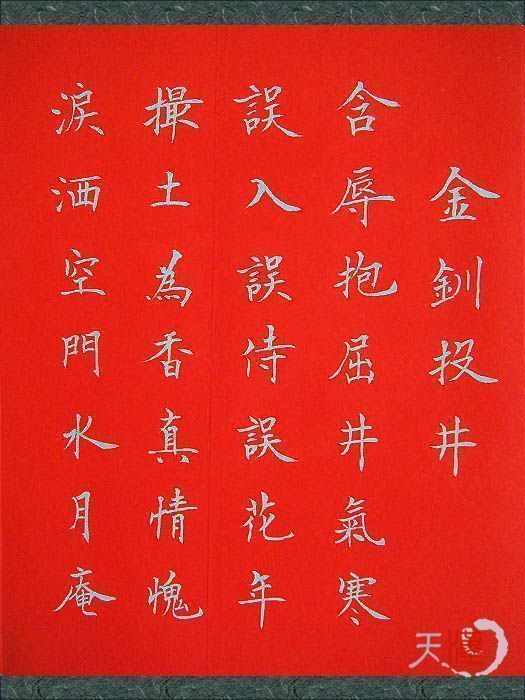 金釧投井
含辱抱屈井氣寒
誤入誤侍誤花年
撮土為香真情愧
淚洒空門水月庵